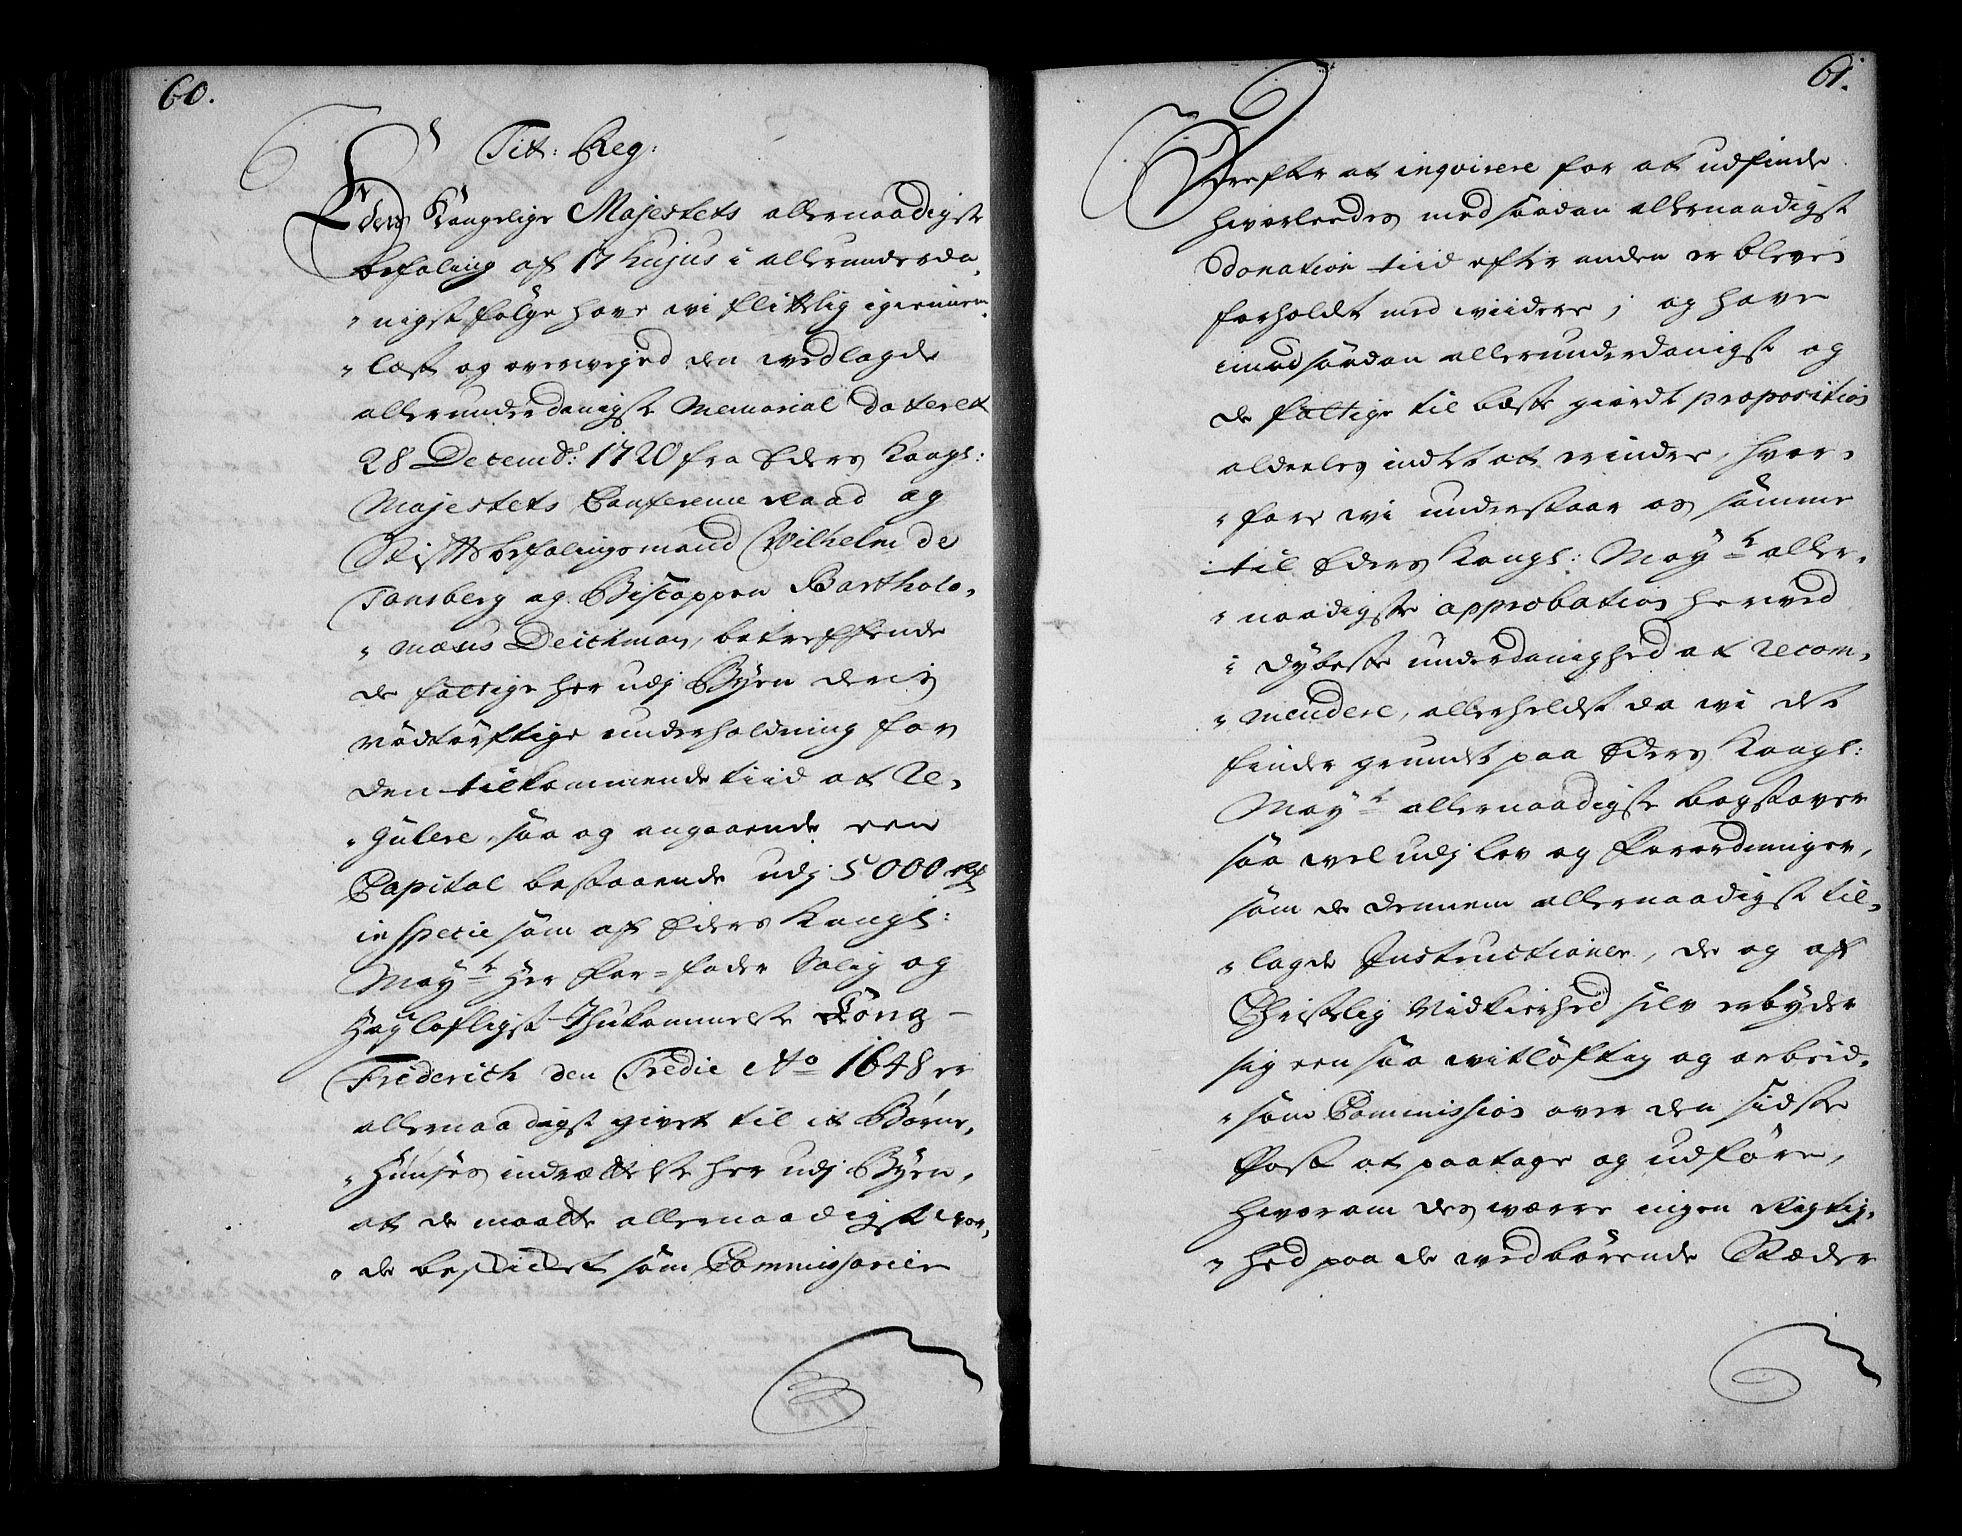 60.
Tit: Reg:
Eders Kongelige Majestets allernaadigste
befaling af 17 hujus i allerunderda„
„nigst følge have wi flittelig igiennem„
„læst og overvejed den wedlagde
allerunderdanigste Memorial dateret
28 Decembr: 1720 fra Eders Kongl:
Majestets Conference Raad og
Stiftsbefalingsmand Wilhelm de
Tonsberg og Biscoppen Bartholo„
„mæus Deichman, betreffende
de fattige her udj Byen deris
nödtörftige underholdning for
den tilkommende tiid at re„
„gulere, saa og angaaende een
Capital bestaaende udj 5000 Rdr
in specie som af Eders Kongl:
Mayts Her Far=fader Salig og
Høylofligst Ihukommelse Kong
Friderich den Tredie Ao 1648 er
allernaadigst givet til et Börne„
„Huuses indrættelse her udj Byen,
at de maatte allernaadigst wor„
„de beskicket som Commissarier
61.
Derefter at inqvirere for at udfinde
hvorleedes med saadan allernaadigst
Donation tiid efter anden er bleven
forholdt med wiidere; og have
imod saadan allerunderdanigst og
de fattige til beste giordt proposition
aldeeles indtet at erindre, hvor„
„fore wi understaar os samme
til Eders Kongl: Mayts aller„
„naadigste approbation herved
i dybeste underdanighed at recom„
„mendere, allerheldst da wi det
finder grundet paa Eders Kongl:
Mayts allernaadigste bogstaver
saa wel udj lov og Forordninger,
som de dennem allernaadigst til„
„lagde Instructioner, de og af
Christelig Nidkierhed selv erbyder
sig een saa witlöftig og arbeid„
„som Commission over den sidste
Post at paatage og udföre,
hvorom des værre ingen Rigtig„
„hed paa de wedbörende Stæder